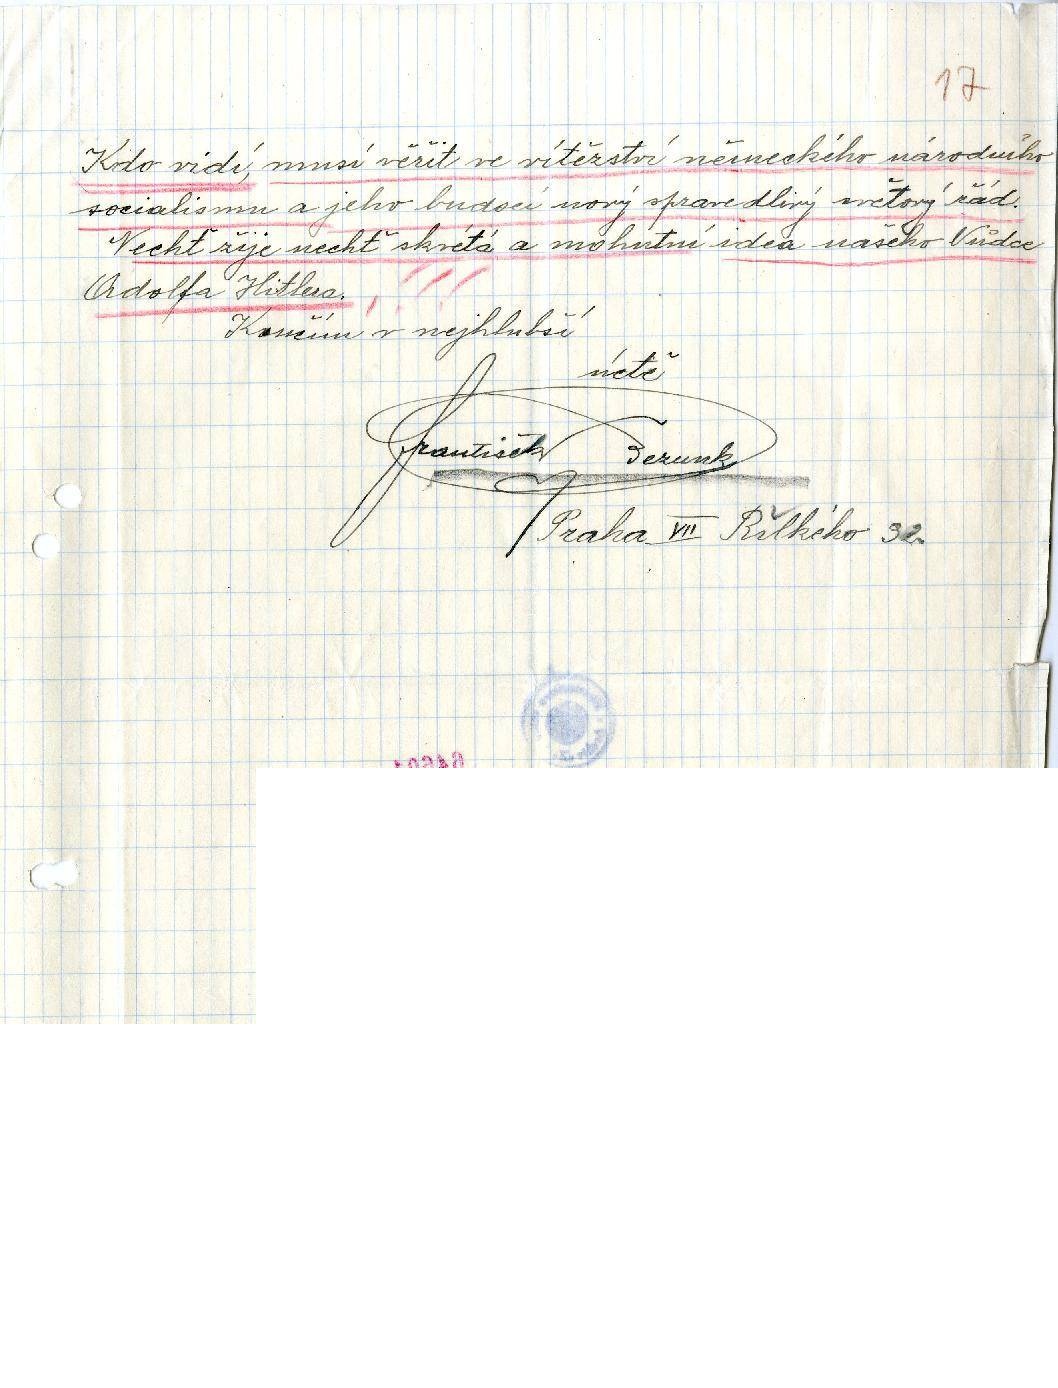 17
Kdo vidí, musí věřit ve vítězství německého národního
socialismu a jeho budoucí nový spravedlivý světový řád.
Nechť žije nechť skvétá a mohutní idea našeho Vůdce
Adolfa Hitlera.
Končím v nejhlubší
úctě
František
Praha VII Řílkého 32.